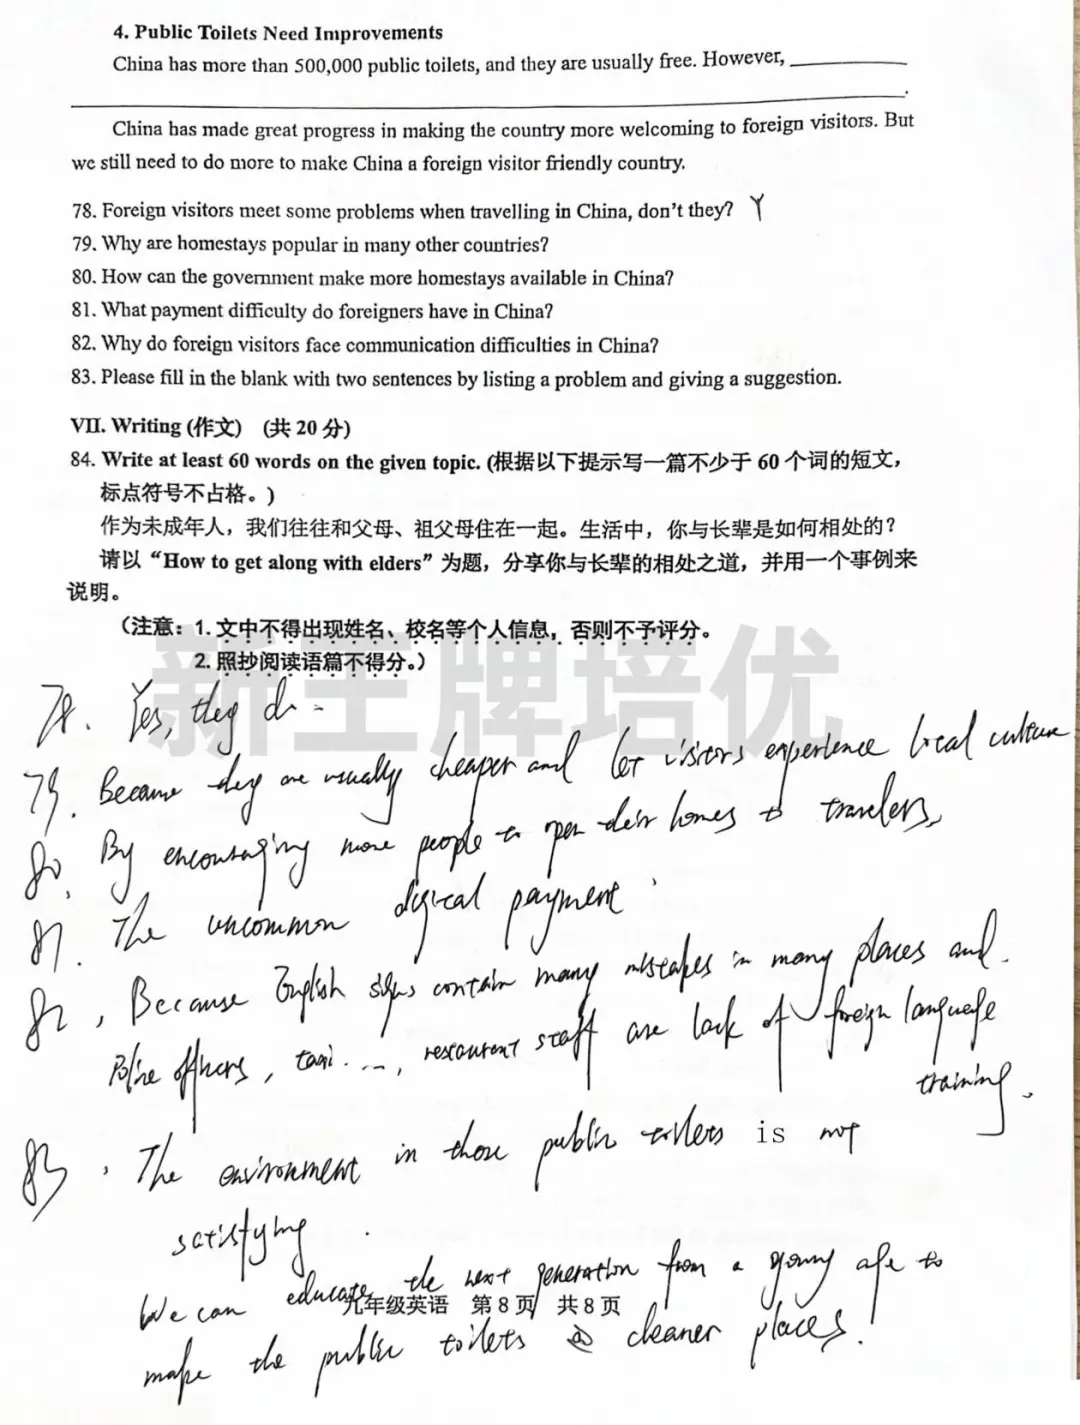 4. Public Toilets Need Improvements
China has more than 500,000 public toilets, and they are usually free. However, ____________
____________.
China has made great progress in making the country more welcoming to foreign visitors. But
we still need to do more to make China a foreign visitor friendly country.
78. Foreign visitors meet some problems when travelling in China, don't they? Y
79. Why are homestays popular in many other countries?
80. How can the government make more homestays available in China?
81. What payment difficulty do foreigners have in China?
82. Why do foreign visitors face communication difficulties in China?
83. Please fill in the blank with two sentences by listing a problem and giving a suggestion.
VII. Writing (作文) (共 20 分)
84. Write at least 60 words on the given topic. (根据以下提示写一篇不少于 60 个词的短文，
标点符号不占格。)
作为未成年人，我们往往和父母、祖父母住在一起。生活中，你与长辈是如何相处的？
请以“How to get along with elders”为题，分享你与长辈的相处之道，并用一个事例来
说明。
(注意：1. 文中不得出现姓名、校名等个人信息，否则不予评分。
2. 照抄阅读语篇不得分。)
新王牌培优
78. Yes, they do.
79. Because they are usually cheaper and let visitors experience local culture
80. By encouraging more people to open their homes to travelers.
81. The uncommon digital payment.
82, Because English signs contain many mistakes in many places and
Police officers, taxi ..., restaurant staff are lack of foreign language
training.
83, The environment in those public toilets is not
satisfying.
We can educate the next generation from a young age to
九年级英语 第 8 页 共 8 页
make the public toilets cleaner places.